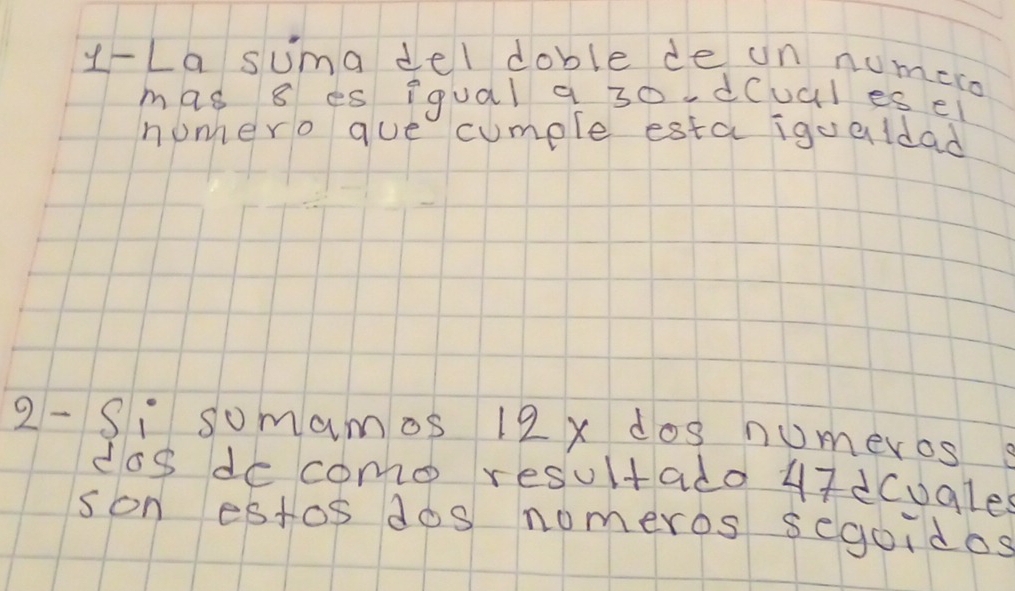 1-La suma del doble de un numero
mas 8 es igual a 30. ¿Cual es el
numero que cumple esta igualdad
2- Si sumamos 12 x dos numeros s
dos de como resultado 47 ¿Cuales
son estos dos numeros seguidos